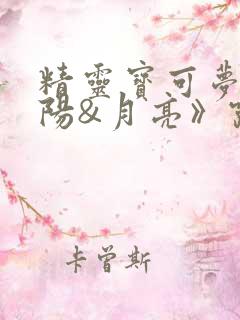 精靈寶可夢
陽&月亮》
卡曾斯